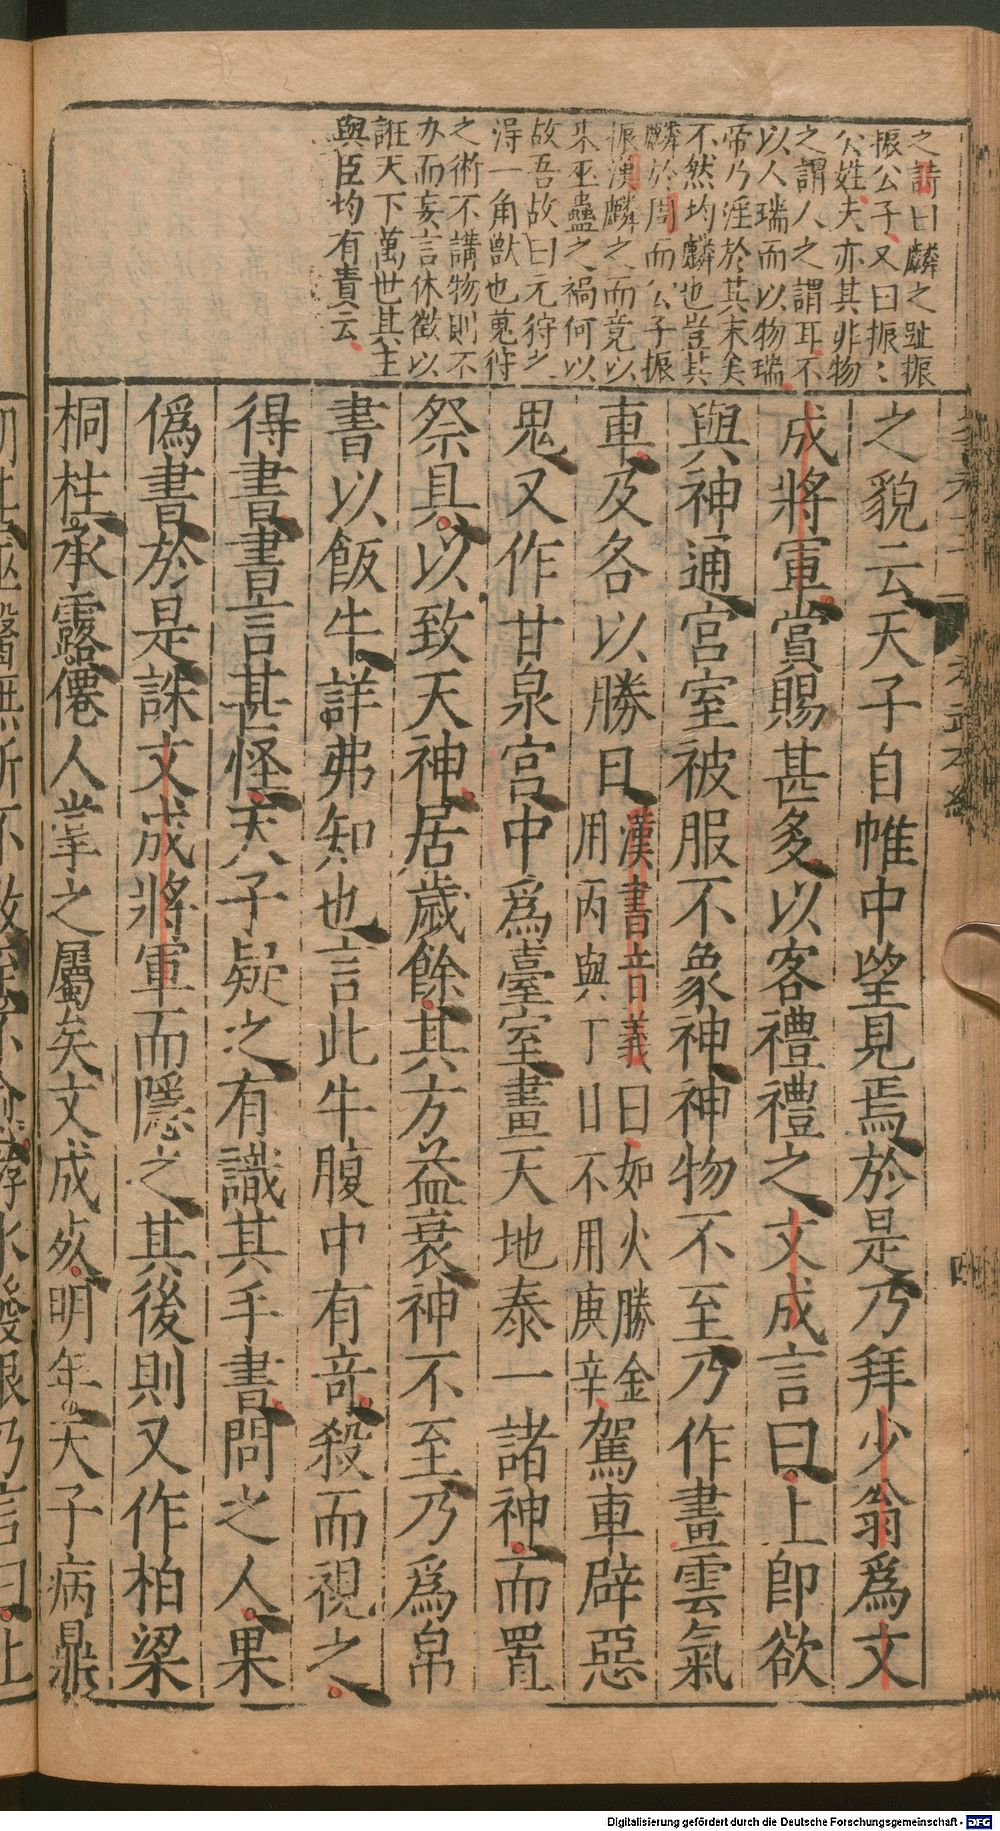 之詩曰麟之趾振
振公子又曰振〻
公姓夫亦其非物
之謂人之謂耳不
以人瑞而以物瑞
帝乃淫於其末矣
不然均麟也豈其
麟於周而公子振
振漢麟之而竟以
來巫蠱之禍何以
故吾故曰元狩之
淂一角獸也蒐狩
之術不講物則不
办而妄言休徵以
誑天下萬世其主
與臣均有責云
之貌云天子自帷中望見焉於是乃拜少翁爲文
成將軍賞賜甚多以客禮禮之文成言曰上即欲
與神通宫室被服不象神神物不至乃作畫雲氣
車及各以勝日漢書音義曰如火勝金用丙與丁日不用庚辛駕車辟惡
鬼又作甘泉宫中爲臺室畫天地泰一諸神而置
祭具以致天神居歲餘其方益衰神不至乃爲帛
書以飯牛詳弗知也言此牛腹中有竒殺而視之
得書書言甚怪天子疑之有識其手書問之人果
僞書於是誅文成將軍而隱之其後則又作柏梁
桐柱承露僊人掌之屬矣文成死明年天子病鼎
四
Digitalisierung gefördert durch die Deutsche Forschungsgemeinschaft - DFG